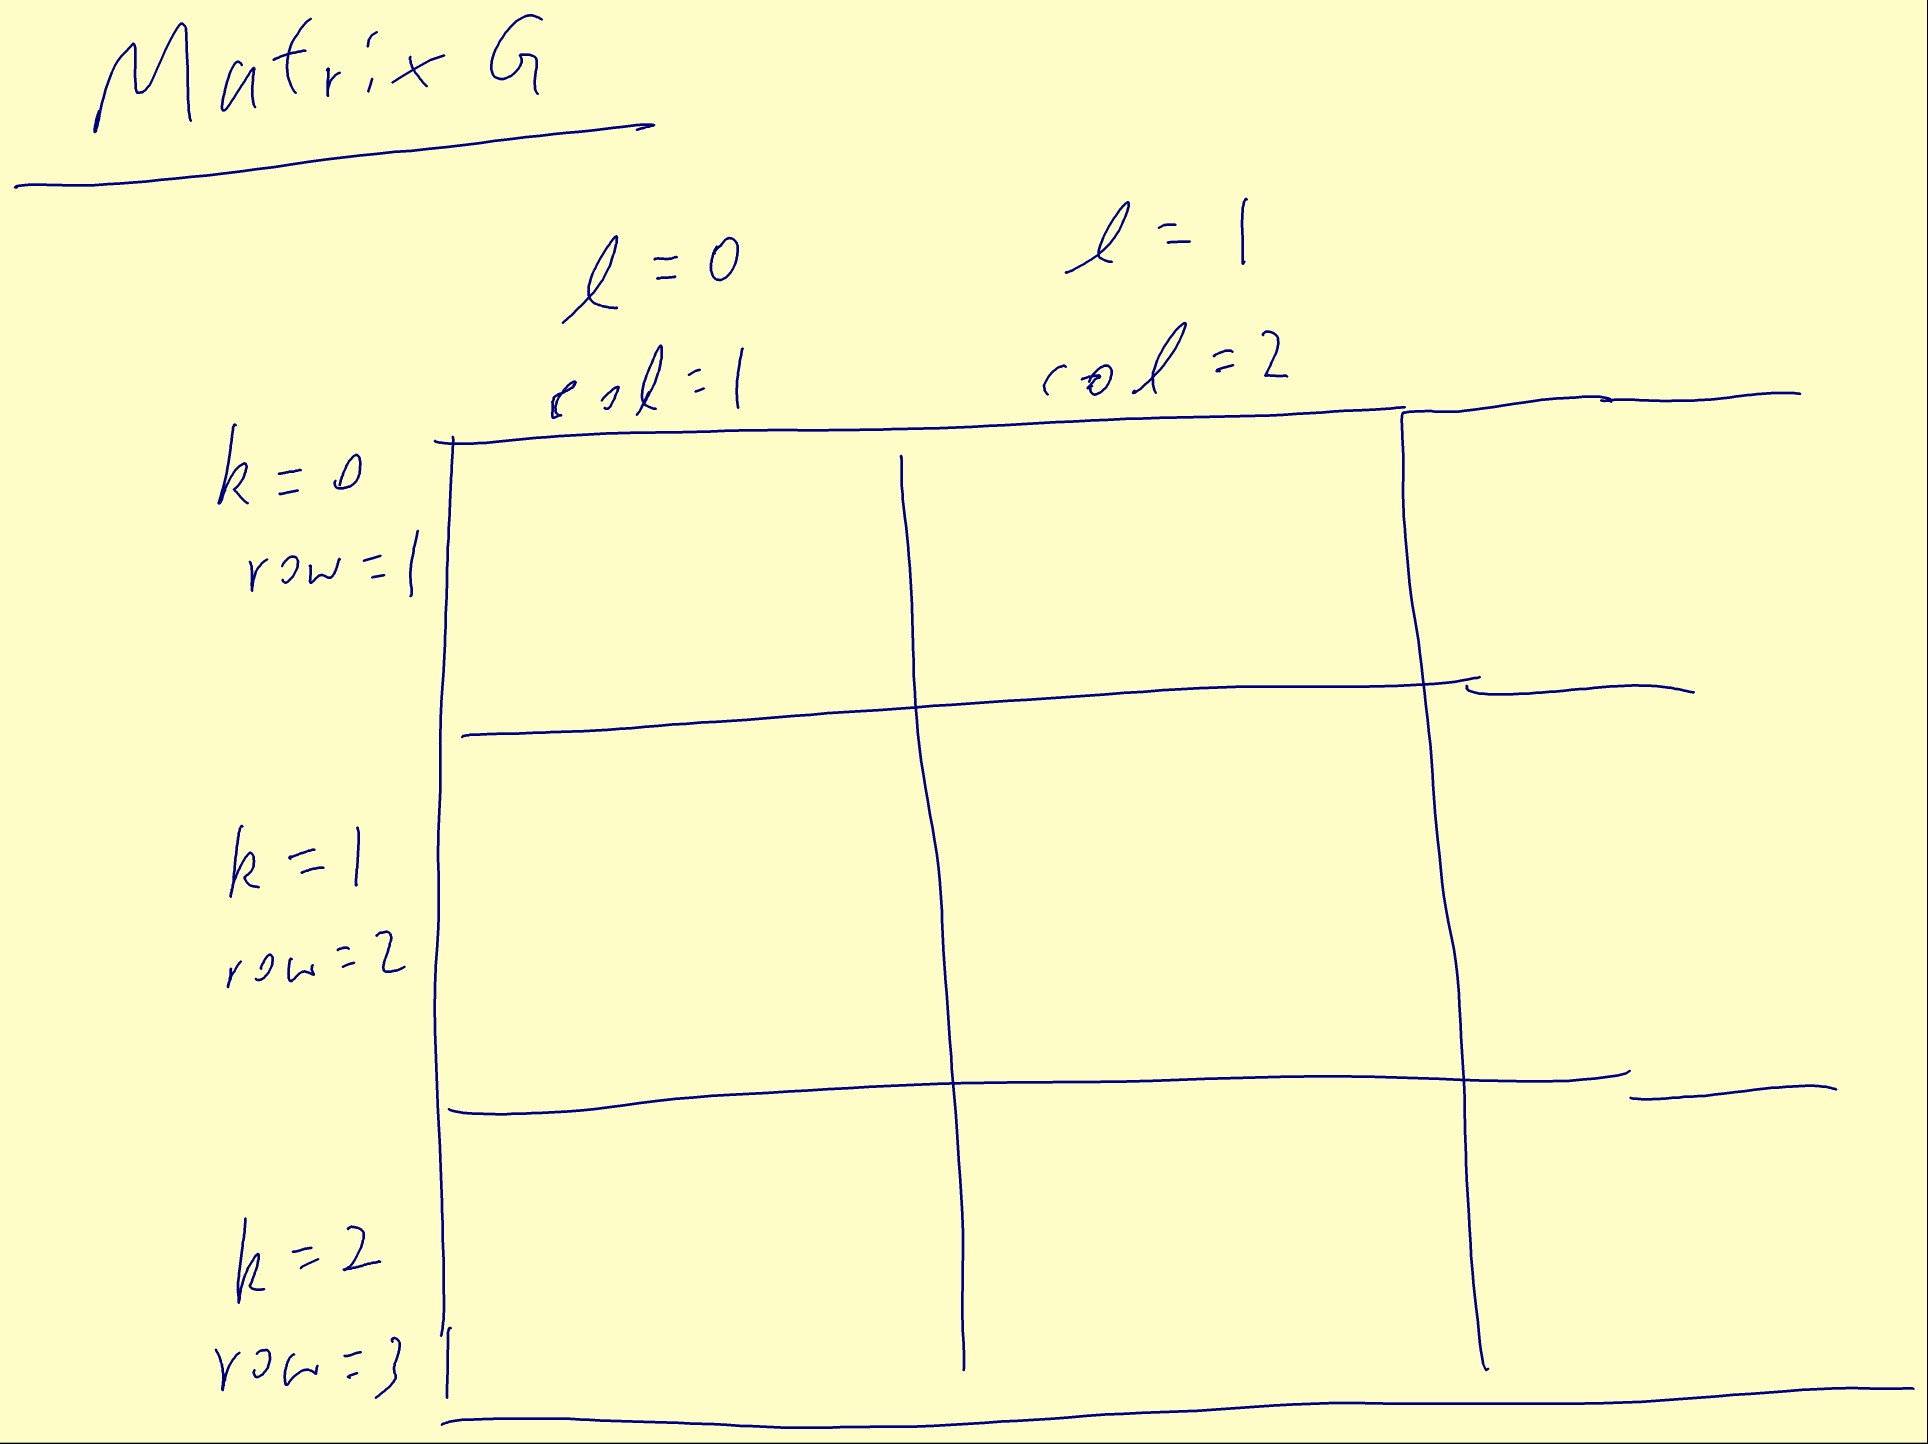 Matrix G
l = 0
l = 1
col = 1
col = 2
k = 0
row = 1
k = 1
row = 2
k = 2
row = 3